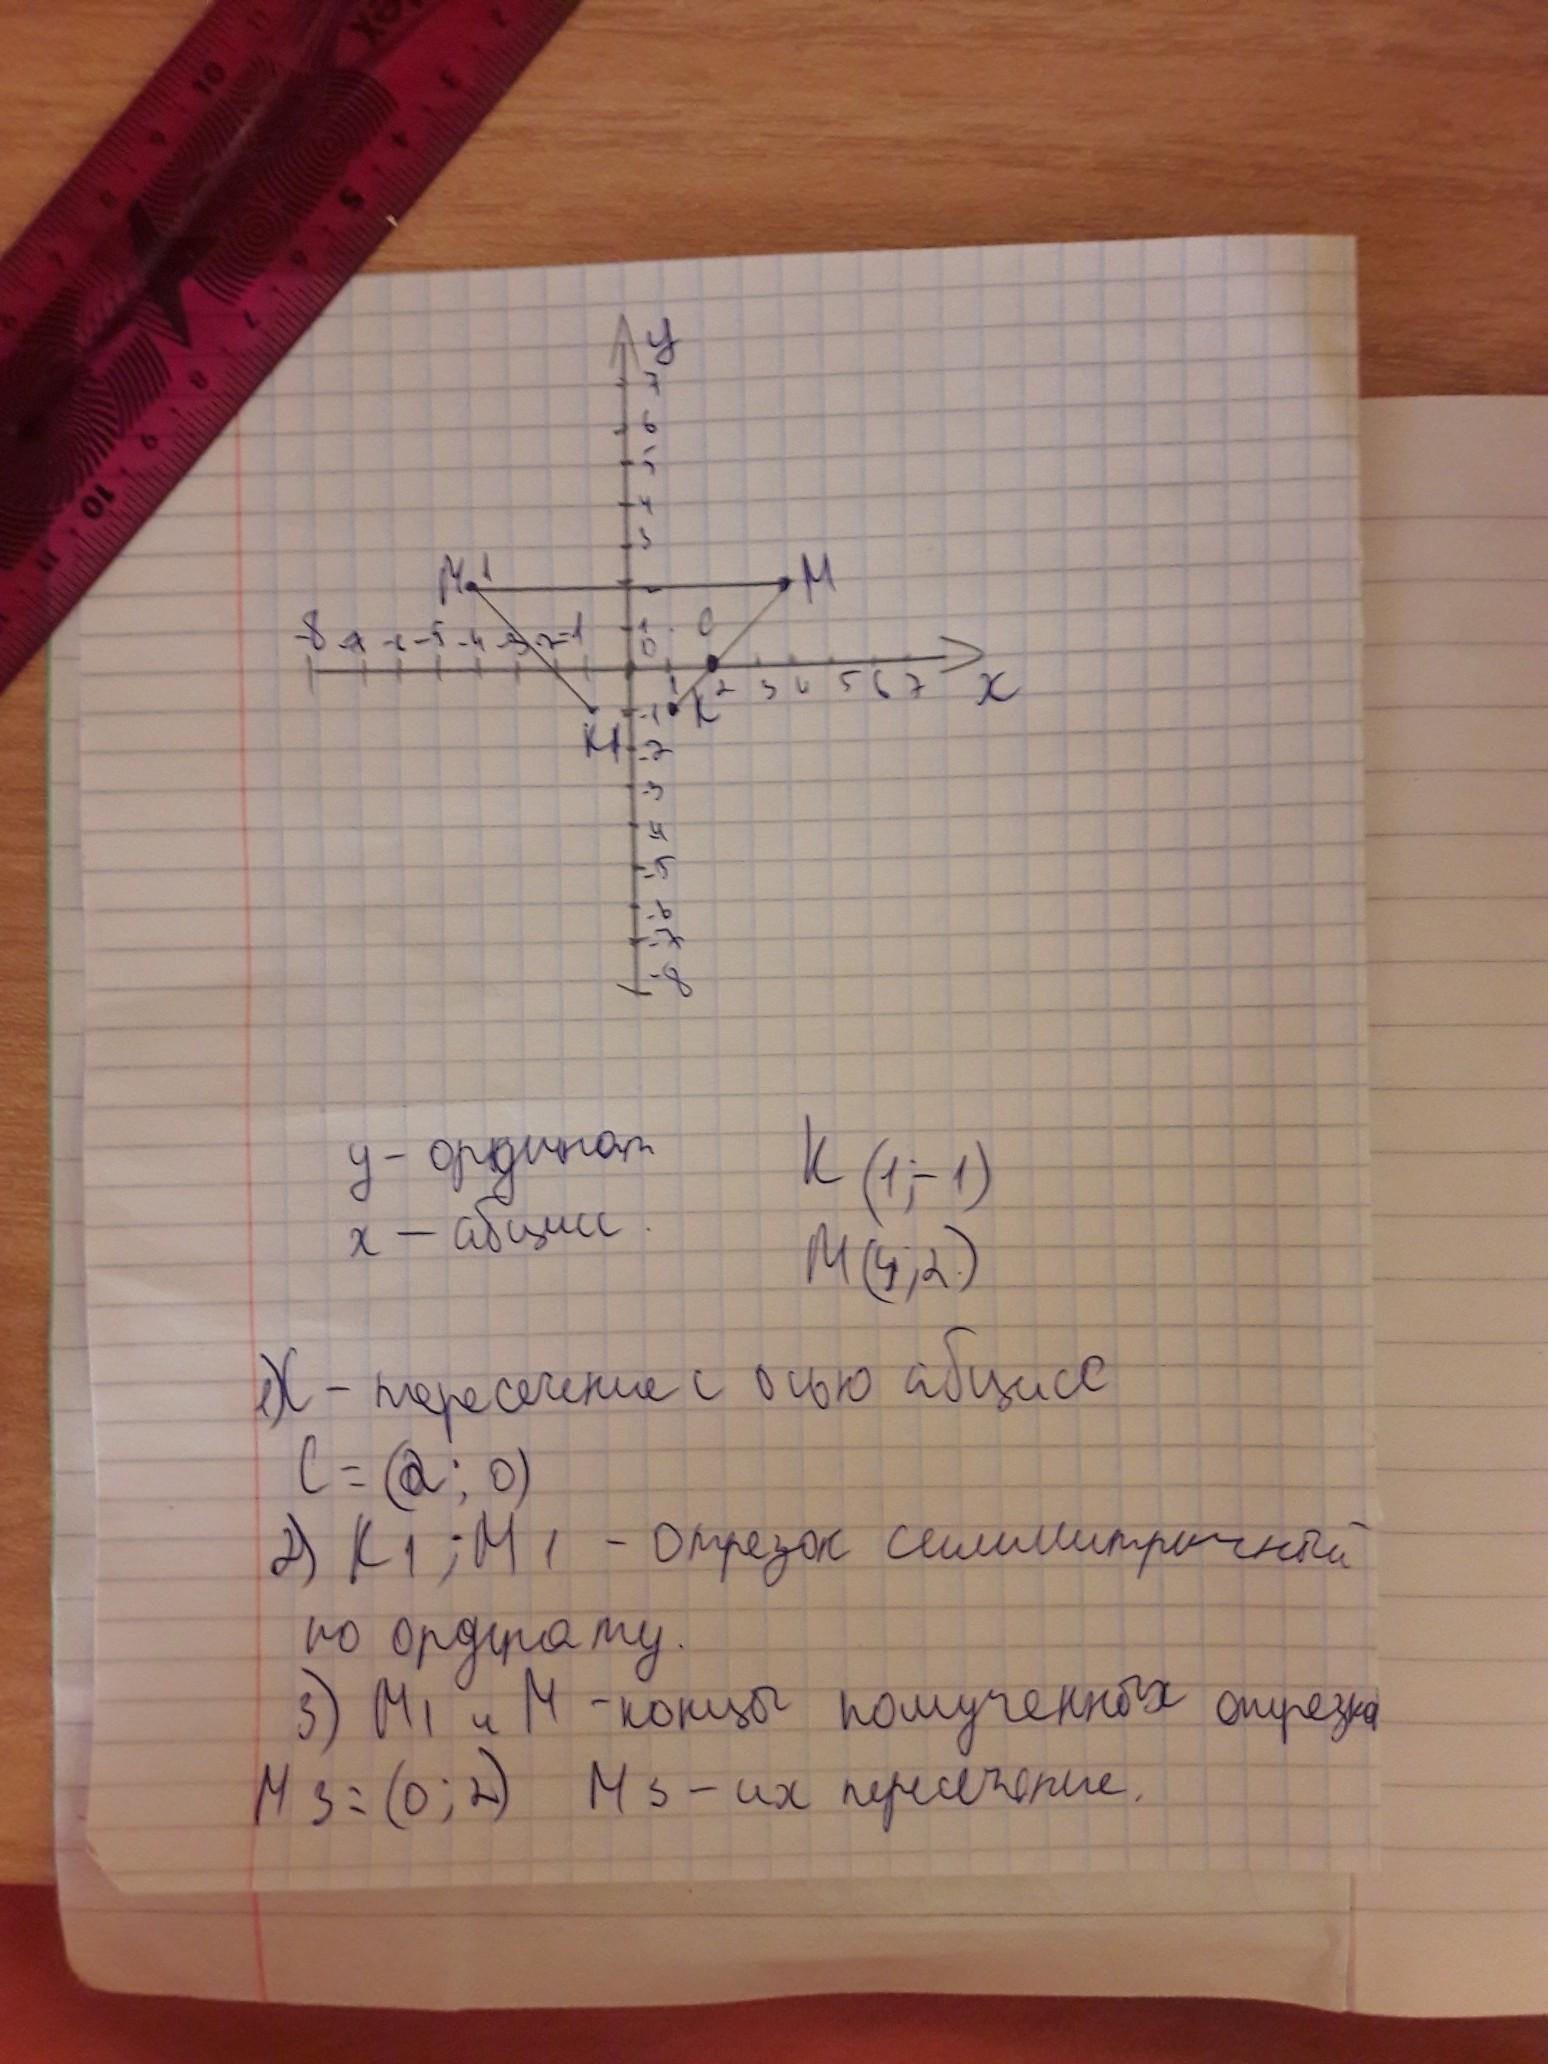 у
7
6
5
4
3
М1 М
1 С
-8 -7 -6 -5 -4 -3 -2 -1 0
1 2 3 4 5 6 7 х
К1 -1 К
-2
-3
-4
-5
-6
-7
-8
у - ординат К (1;-1)
х - абцисс. М(4;2)
1) С - пересечение с осью абцисс
С = (2; 0)
2) К1; М1 - отрезок симмитричный
по ординату.
3) М1 и М - концы полученных отрезка
М3 = (0; 2) М3 - их пересечение.